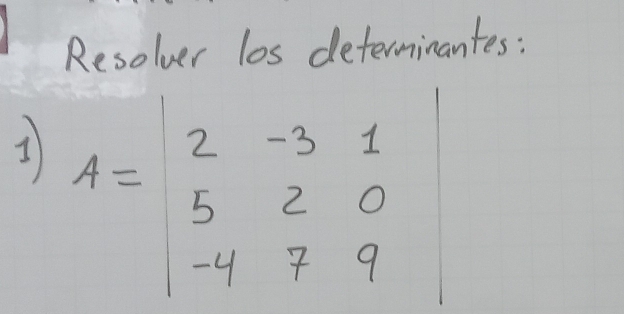 Resolver los determinantes:
1) A = | 2 -3 1 |
| 5 2 0 |
| -4 7 9 |